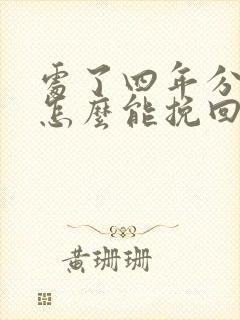 處了四年分
怎麼能挽回
黃珊珊